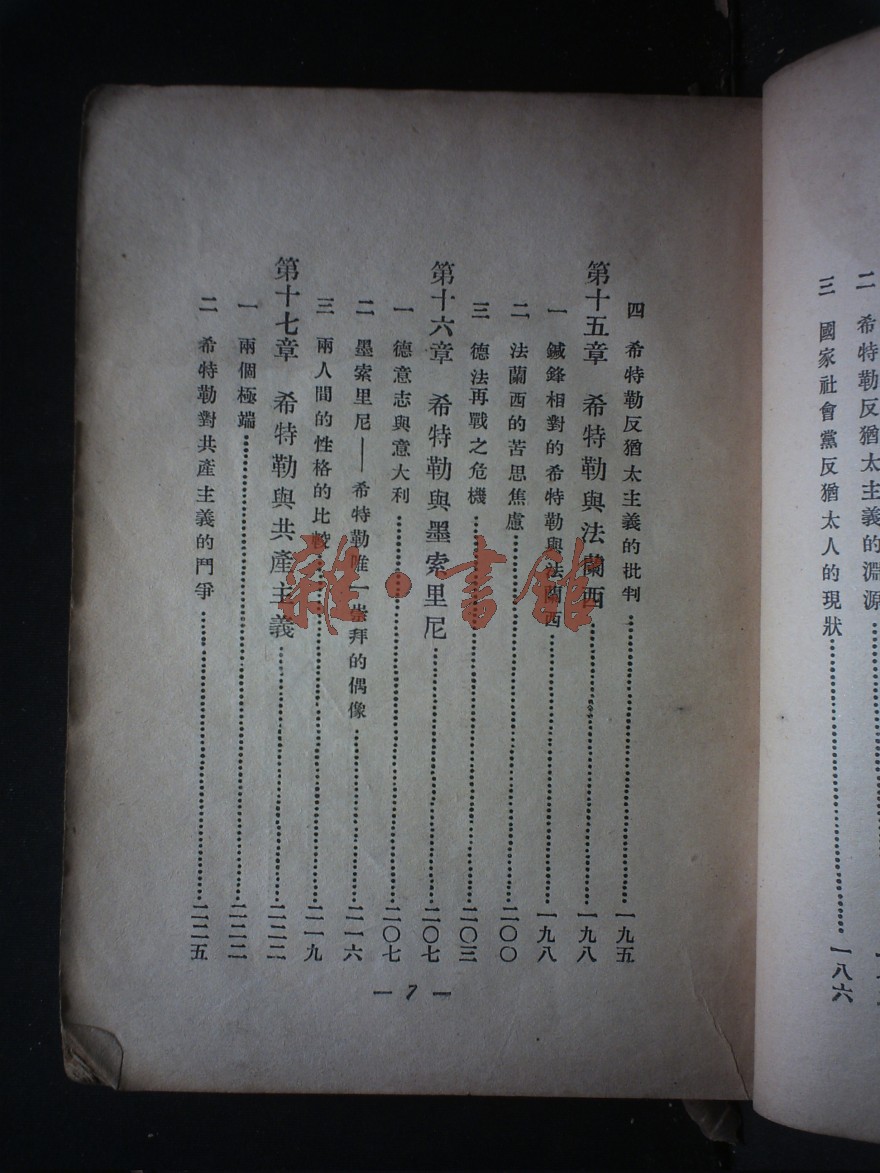 二 希特勒反猶太主義的淵源
三 國家社會黨反猶太人的現狀 一八六
四 希特勒反猶太主義的批判 一九五
第十五章 希特勒與法蘭西 一九八
一 鍼鋒相對的希特勒與法蘭西 一九八
二 法蘭西的苦思焦慮 二〇〇
三 德法再戰之危機 二〇三
第十六章 希特勒與墨索里尼 二〇七
一 德意志與意大利 二〇七
二 墨索里尼——希特勒唯一崇拜的偶像 二一六
三 兩人間的性格的比較 二一九
第十七章 希特勒與共產主義 二二二
一 兩個極端 二二二
二 希特勒對共產主義的鬥爭 二二五
— 7 —
雜·書館